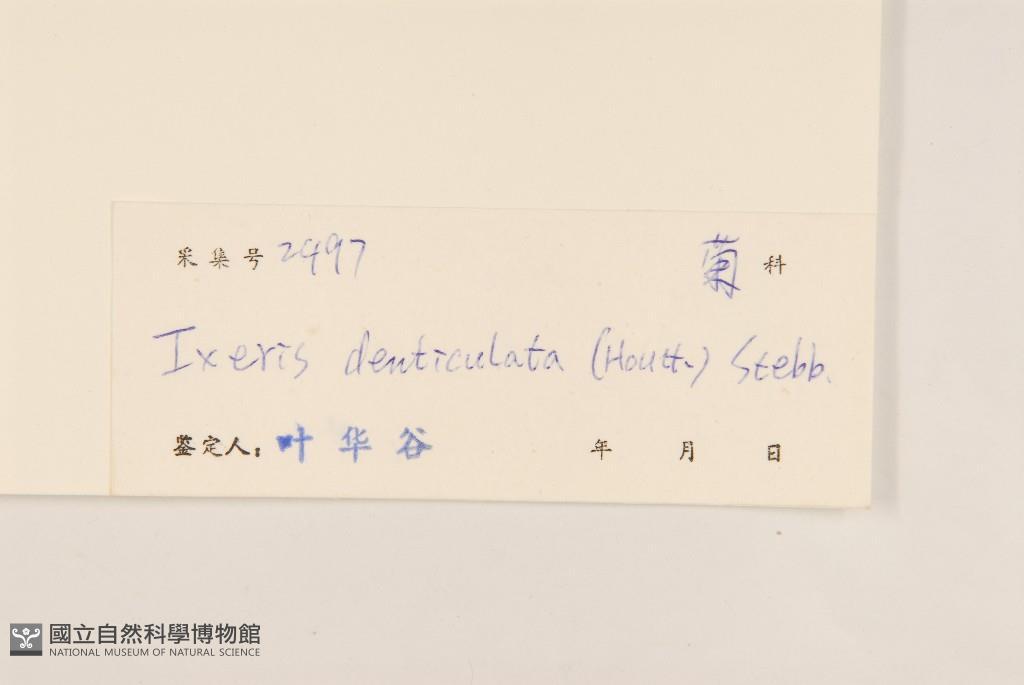 采集号 2497 菊科
Ixeris denticulata (Houtt.) Stebb.
鉴定人：叶华谷 年 月 日
國立自然科學博物館
NATIONAL MUSEUM OF NATURAL SCIENCE